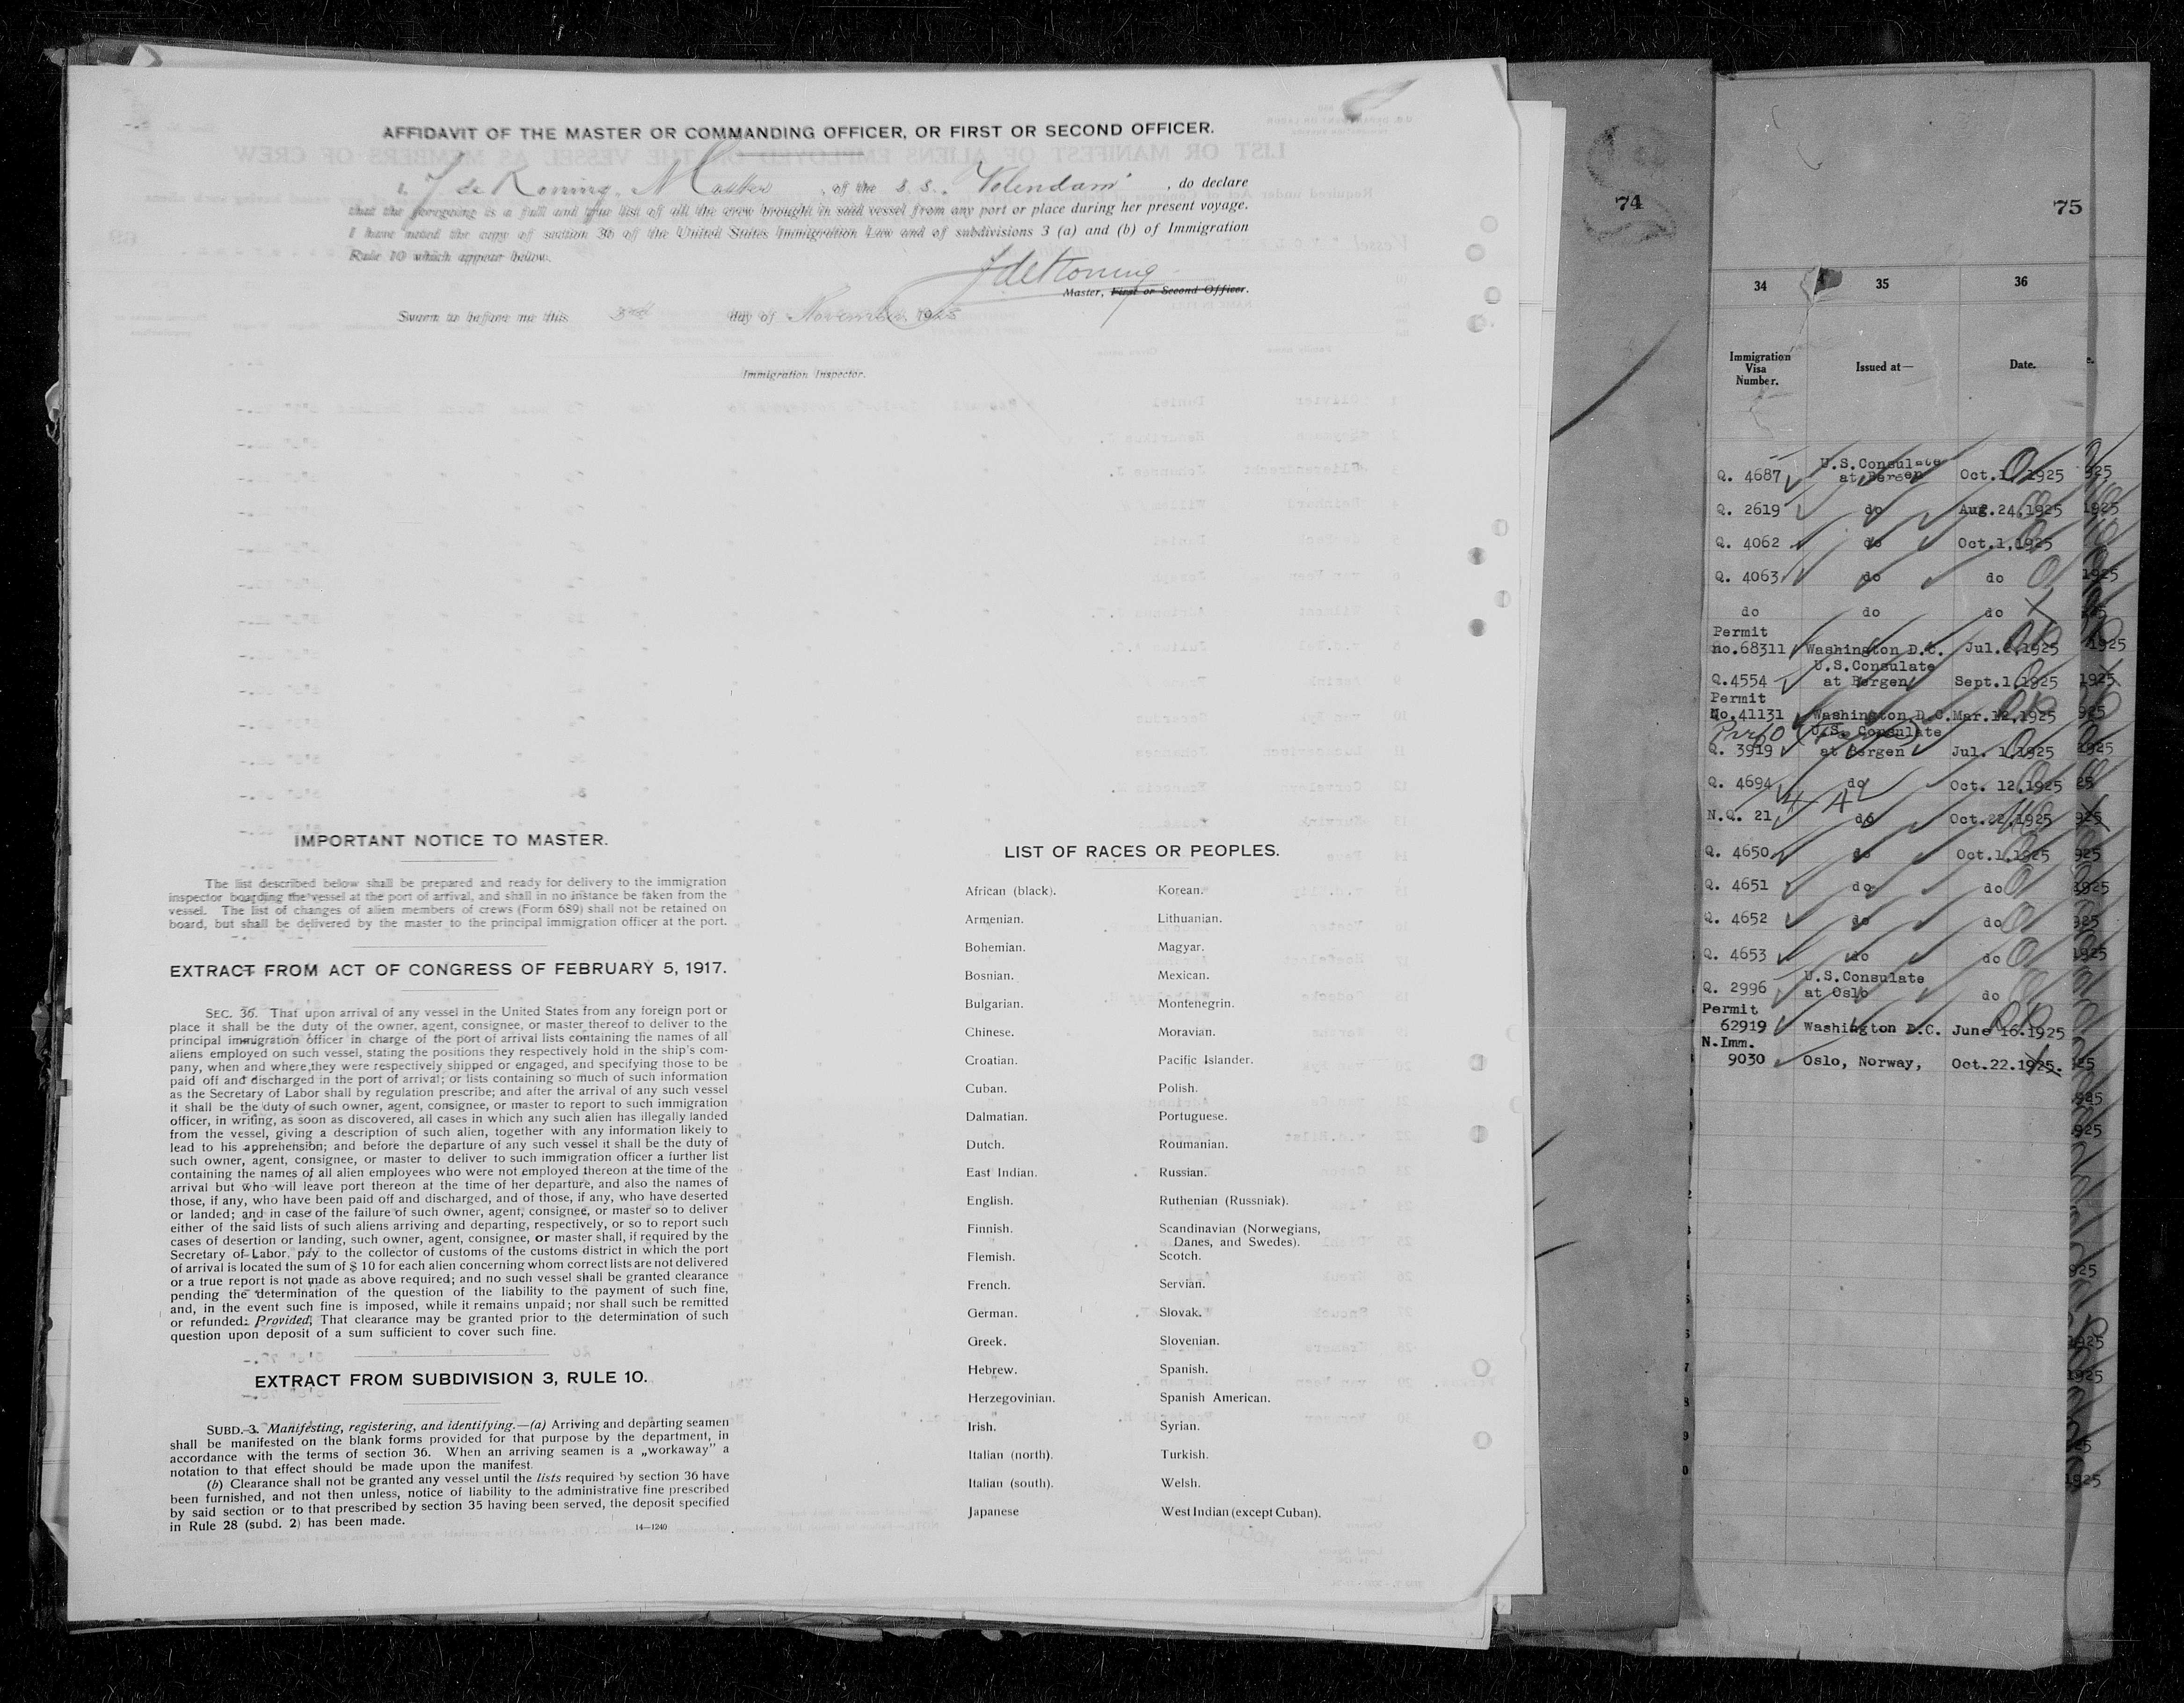 AFFIDAVIT OF THE MASTER OR COMMANDING OFFICER, OR FIRST OR SECOND OFFICER.
I, J de Koning, Master, of the S.S. "Volendam", do declare
that the foregoing is a full and true list of all the crew brought in said vessel from any port or place during her present voyage.
I have noted the copy of section 36 of the United States Immigration Law and of subdivisions 3 (a) and (b) of Immigration
Rule 10 which appear below.
J de Koning
Master, First or Second Officer.
Sworn to before me this 3rd day of November 1925
Immigration Inspector.
IMPORTANT NOTICE TO MASTER.
The list described below shall be prepared and ready for delivery to the immigration
inspector boarding the vessel at the port of arrival, and shall in no instance be taken from the
vessel. The list of changes of alien members of crews (Form 689) shall not be retained on
board, but shall be delivered by the master to the principal immigration officer at the port.
EXTRACT FROM ACT OF CONGRESS OF FEBRUARY 5, 1917.
SEC. 36. That upon arrival of any vessel in the United States from any foreign port or
place it shall be the duty of the owner, agent, consignee, or master thereof to deliver to the
principal immigration officer in charge of the port of arrival lists containing the names of all
aliens employed on such vessel, stating the positions they respectively hold in the ship's com-
pany, when and where they were respectively shipped or engaged, and specifying those to be
paid off and discharged in the port of arrival; or lists containing so much of such information
as the Secretary of Labor shall by regulation prescribe; and after the arrival of any such vessel
it shall be the duty of such owner, agent, consignee, or master to report to such immigration
officer, in writing, as soon as discovered, all cases in which any such alien has illegally landed
from the vessel, giving a description of such alien, together with any information likely to
lead to his apprehension; and before the departure of any such vessel it shall be the duty of
such owner, agent, consignee, or master to deliver to such immigration officer a further list
containing the names of all alien employees who were not employed thereon at the time of the
arrival but who will leave port thereon at the time of her departure, and also the names of
those, if any, who have been paid off and discharged, and of those, if any, who have deserted
or landed; and in case of the failure of such owner, agent, consignee, or master so to deliver
either of the said lists of such aliens arriving and departing, respectively, or so to report such
cases of desertion or landing, such owner, agent, consignee, or master shall, if required by the
Secretary of Labor, pay to the collector of customs of the customs district in which the port
of arrival is located the sum of $ 10 for each alien concerning whom correct lists are not delivered
or a true report is not made as above required; and no such vessel shall be granted clearance
pending the determination of the question of the liability to the payment of such fine,
and, in the event such fine is imposed, while it remains unpaid; nor shall such be remitted
or refunded: Provided, That clearance may be granted prior to the determination of such
question upon deposit of a sum sufficient to cover such fine.
EXTRACT FROM SUBDIVISION 3, RULE 10.
SUBD. 3. Manifesting, registering, and identifying.—(a) Arriving and departing seamen
shall be manifested on the blank forms provided for that purpose by the department, in
accordance with the terms of section 36. When an arriving seamen is a „workaway" a
notation to that effect should be made upon the manifest.
(b) Clearance shall not be granted any vessel until the lists required by section 36 have
been furnished, and not then unless, notice of liability to the administrative fine prescribed
by said section or to that prescribed by section 35 having been served, the deposit specified
in Rule 28 (subd. 2) has been made.
14—1240
LIST OF RACES OR PEOPLES.
African (black).
Armenian.
Bohemian.
Bosnian.
Bulgarian.
Chinese.
Croatian.
Cuban.
Dalmatian.
Dutch.
East Indian.
English.
Finnish.
Flemish.
French.
German.
Greek.
Hebrew.
Herzegovinian.
Irish.
Italian (north).
Italian (south).
Japanese
Korean.
Lithuanian.
Magyar.
Mexican.
Montenegrin.
Moravian.
Pacific Islander.
Polish.
Portuguese.
Roumanian.
Russian.
Ruthenian (Russniak).
Scandinavian (Norwegians,
Danes, and Swedes).
Scotch.
Servian.
Slovak.
Slovenian.
Spanish.
Spanish American.
Syrian.
Turkish.
Welsh.
West Indian (except Cuban).
74
75
34 35 36
Immigration
Visa
Number.
Issued at—
Date.
Q. 4687 U.S.Consulate at Bergen Oct.1,1925
Q. 2619 do Aug.24,1925
Q. 4062 do Oct.1,1925
Q. 4063 do do
do do do
Permit
no.68311 Washington D.C. Jul. 1925
Q.4554 U.S.Consulate at Bergen Sept.1,1925
Permit
No.41131 Washington D.C. Mar.12,1925
Q. 3919 U.S. Consulate at Bergen Jul. 1,1925
Q. 4694 do Oct. 12,1925
N.Q. 21 do Oct.22,1925
Q. 4650 do Oct.1,1925
Q. 4651 do do
Q. 4652 do do
Q. 4653 do do
Q. 2996 U.S.Consulate at Oslo do
Permit
62919 Washington D.C. June 16.1925
N.Imm.
9030 Oslo, Norway, Oct.22.1925.